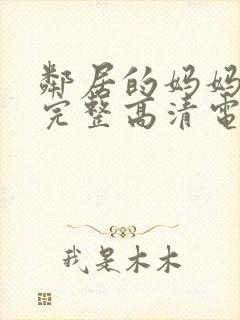 鄰居的妈妈
完整高清電
我是木木